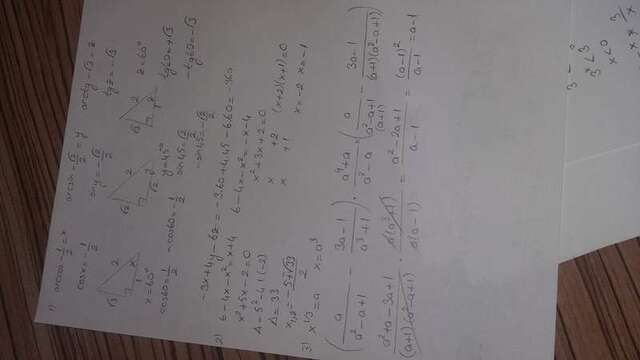 1) arccos -1/2 = x   arcsin -√2/2 = y   arctg -√3 = z
cosx = -1/2   siny = -√2/2   tgz = -√3
√3 2 1 x   √2 2 √2 y   √3 2 1   z = 60°
x = 60°   y = 45°   tg60 = √3
cos60 = 1/2   -cos60 = -1/2   sin45 = √2/2   -tg60 = -√3
-sin45 = -√2/2
-3x + 4y - 6z = -3.60 + 4.45 - 6.60 = -360
2) 6 - 4x - x² = x + 4   6 - 4x - x² = -x - 4
x² + 5x - 2 = 0   x² + 3x + 2 = 0
Δ = 5² - 4.1(-2)   x +2   (x+2)(x+1) = 0
Δ = 33   x +1   x = -2   x = -1
x₁,₂ = -5 ± √33 / 2
3) x^1/3 = a   x = a³
(a/(a² - a + 1) - (3a - 1)/(a³ + 1)) . (a⁴ + a)/(a² - a) = (a/(a² - a + 1) (a+1) - (3a - 1)/((a+1)(a² - a + 1)))
(a² + a - 3a + 1)/((a+1)(a² - a + 1)) . a(a³ + 1)/a(a - 1) = (a² - 2a + 1)/(a - 1) = (a - 1)²/(a - 1) = a - 1
3ˣ < 3
x < 0